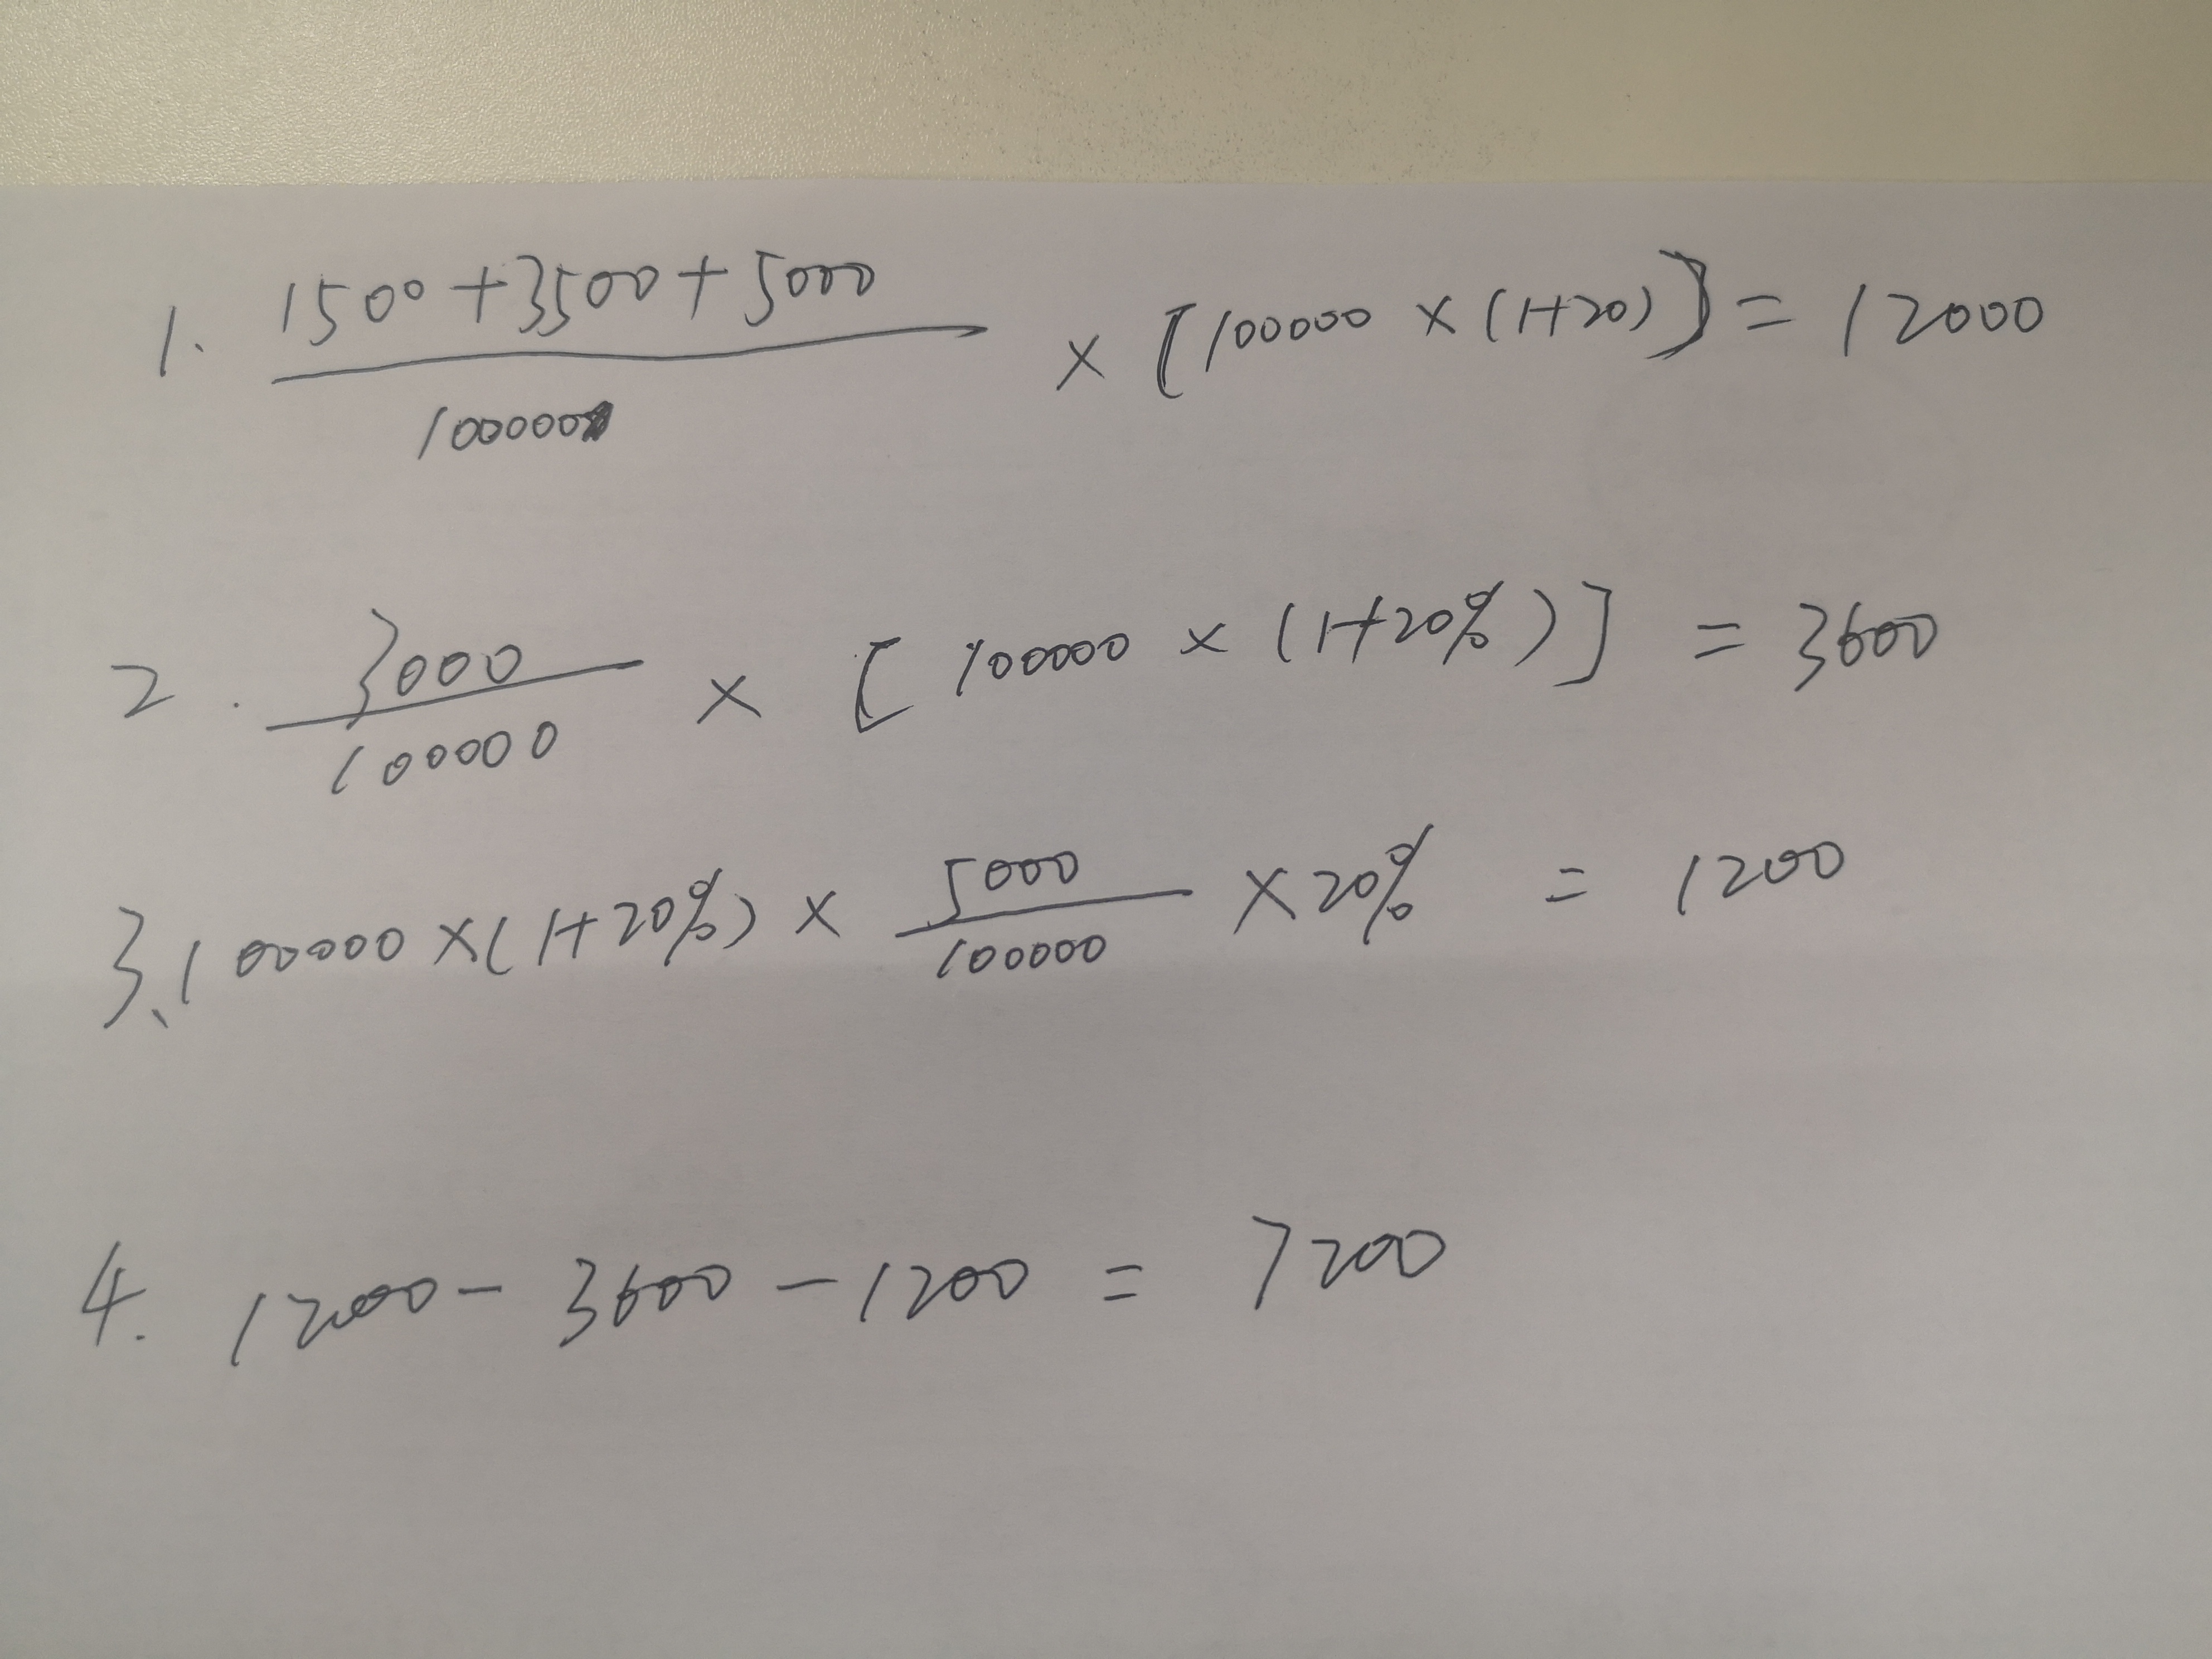 1. 1500+3500+5000 × [100000 × (1+20)] = 12000
100000
2. 3000 × [100000 × (1+20%)] = 3600
100000
3、100000×(1+20%) × 5000 ×20% = 1200
100000
4. 12000 - 3600 - 1200 = 7200